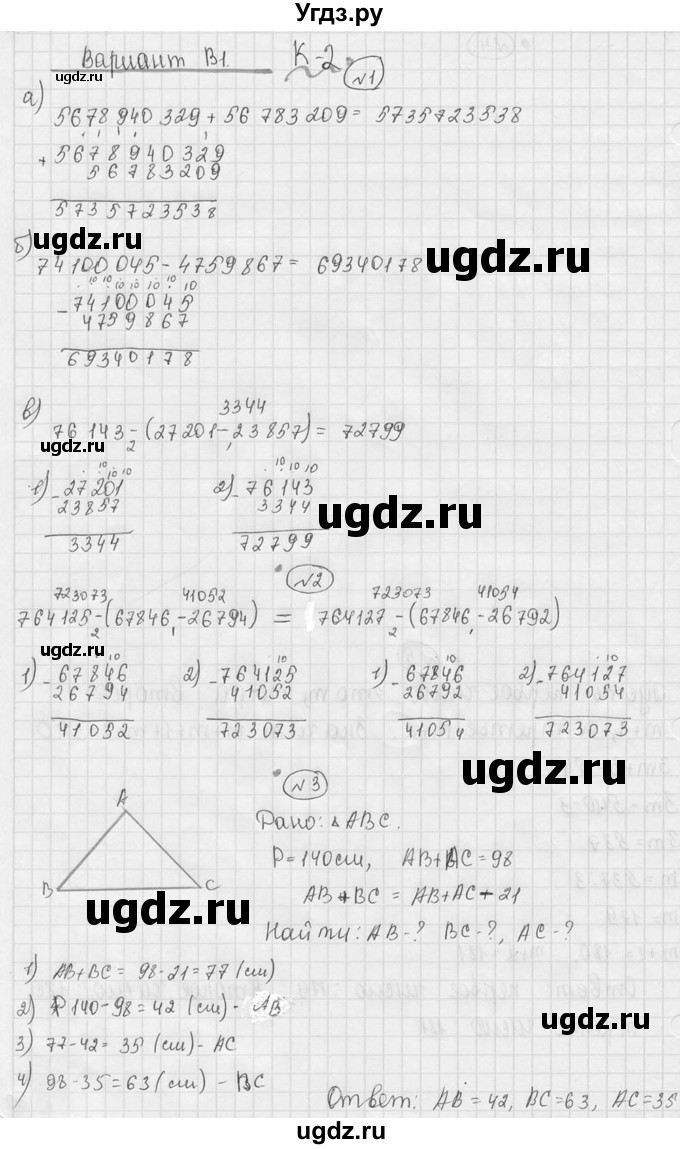 Угдз.ру
Вариант В1. К-2
№1
а) 5678940329 + 56783209 = 5735723538
+ 5678940329
56783209
5735723538
ugdz.ru
ugdz.ru
б) 74100045 - 4759867 = 69340178
10 10 10 10 10 10
- 74100045
4759867
69340178
ugdz.ru
3344
в) 76143 - (27201 - 23857) = 72799
2 1
10 10 10
10 10 10
1) - 27201
23857
3344
2) - 76143
3344
72799
ugdz.ru
ugdz.ru
№2
723073 41052 723073 41054
764125 - (67846 - 26794) = 764127 - (67846 - 26792)
2 1 2 1
10 10 10 10
1) - 67846
26794
41052
2) - 764125
41052
723073
1) - 67846
26792
41054
2) - 764127
41054
723073
ugdz.ru
ugdz.ru
№3
A
B C
Дано: ΔABC.
P = 140см, AB + AC = 98
AB + BC = AB + AC - 21
Найти: AB - ? BC - ?, AC - ?
ugdz.ru
1) AB + BC = 98 - 21 = 77 (см)
2) 140 - 98 = 42 (см) - AB
3) 77 - 42 = 35 (см) - AC
4) 98 - 35 = 63 (см) - BC
Ответ: AB = 42, BC = 63, AC = 35
ugdz.ru
ugdz.ru
ugdz.ru